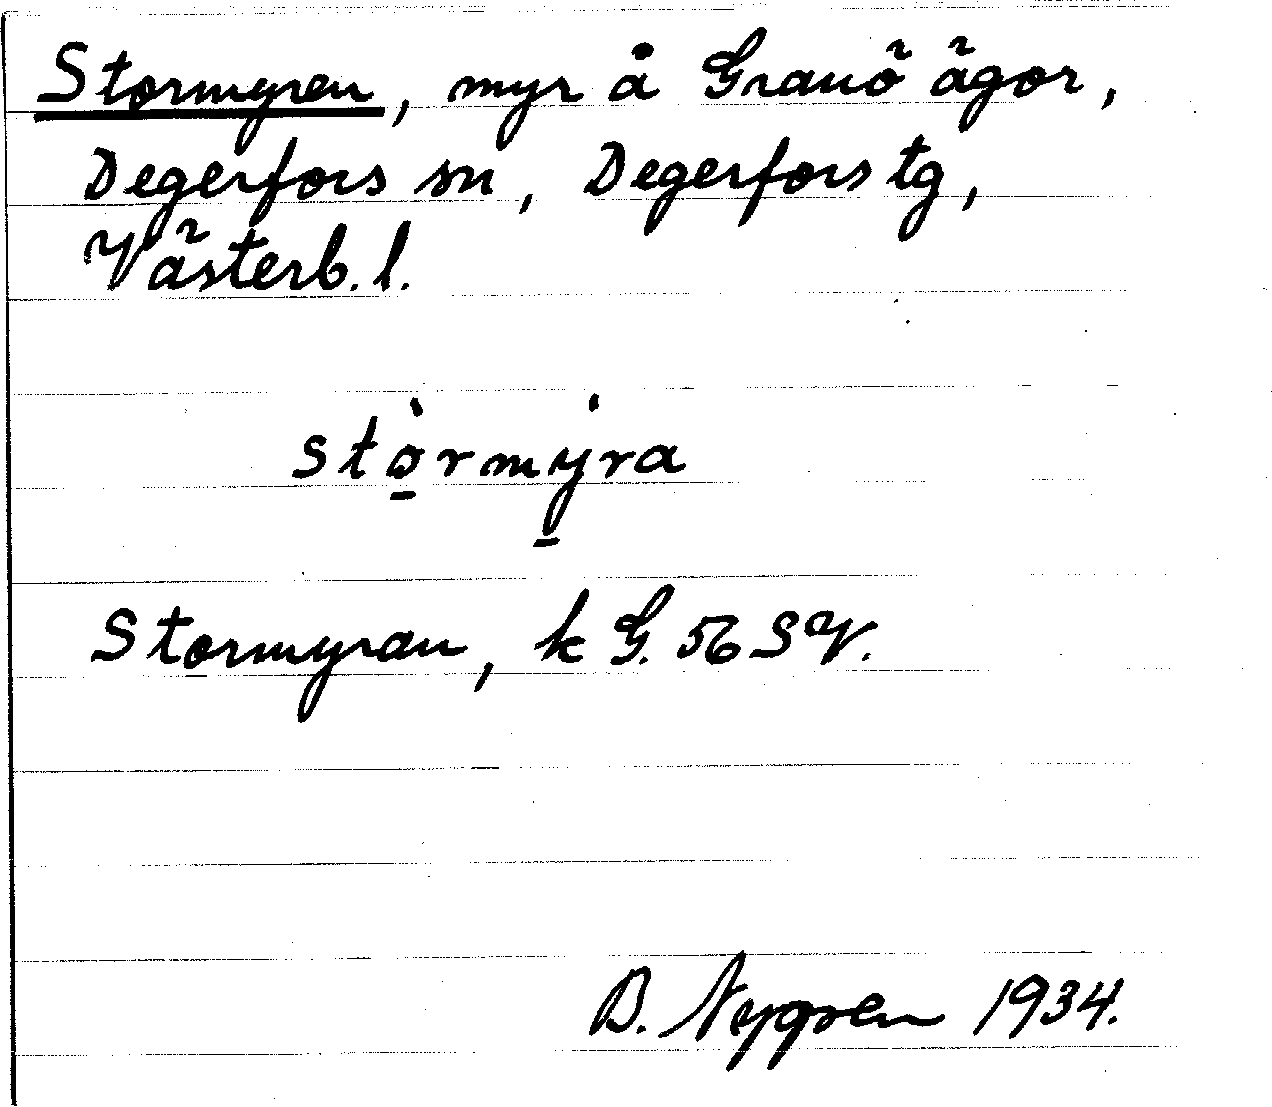 Stormyren, myr å Granö ägor,
Degerfors sn, Degerfors tg,
Västerb. l.
stò̱rmý̱ra
Stormyran, k G. 56 SV.
B. Nygren 1934.